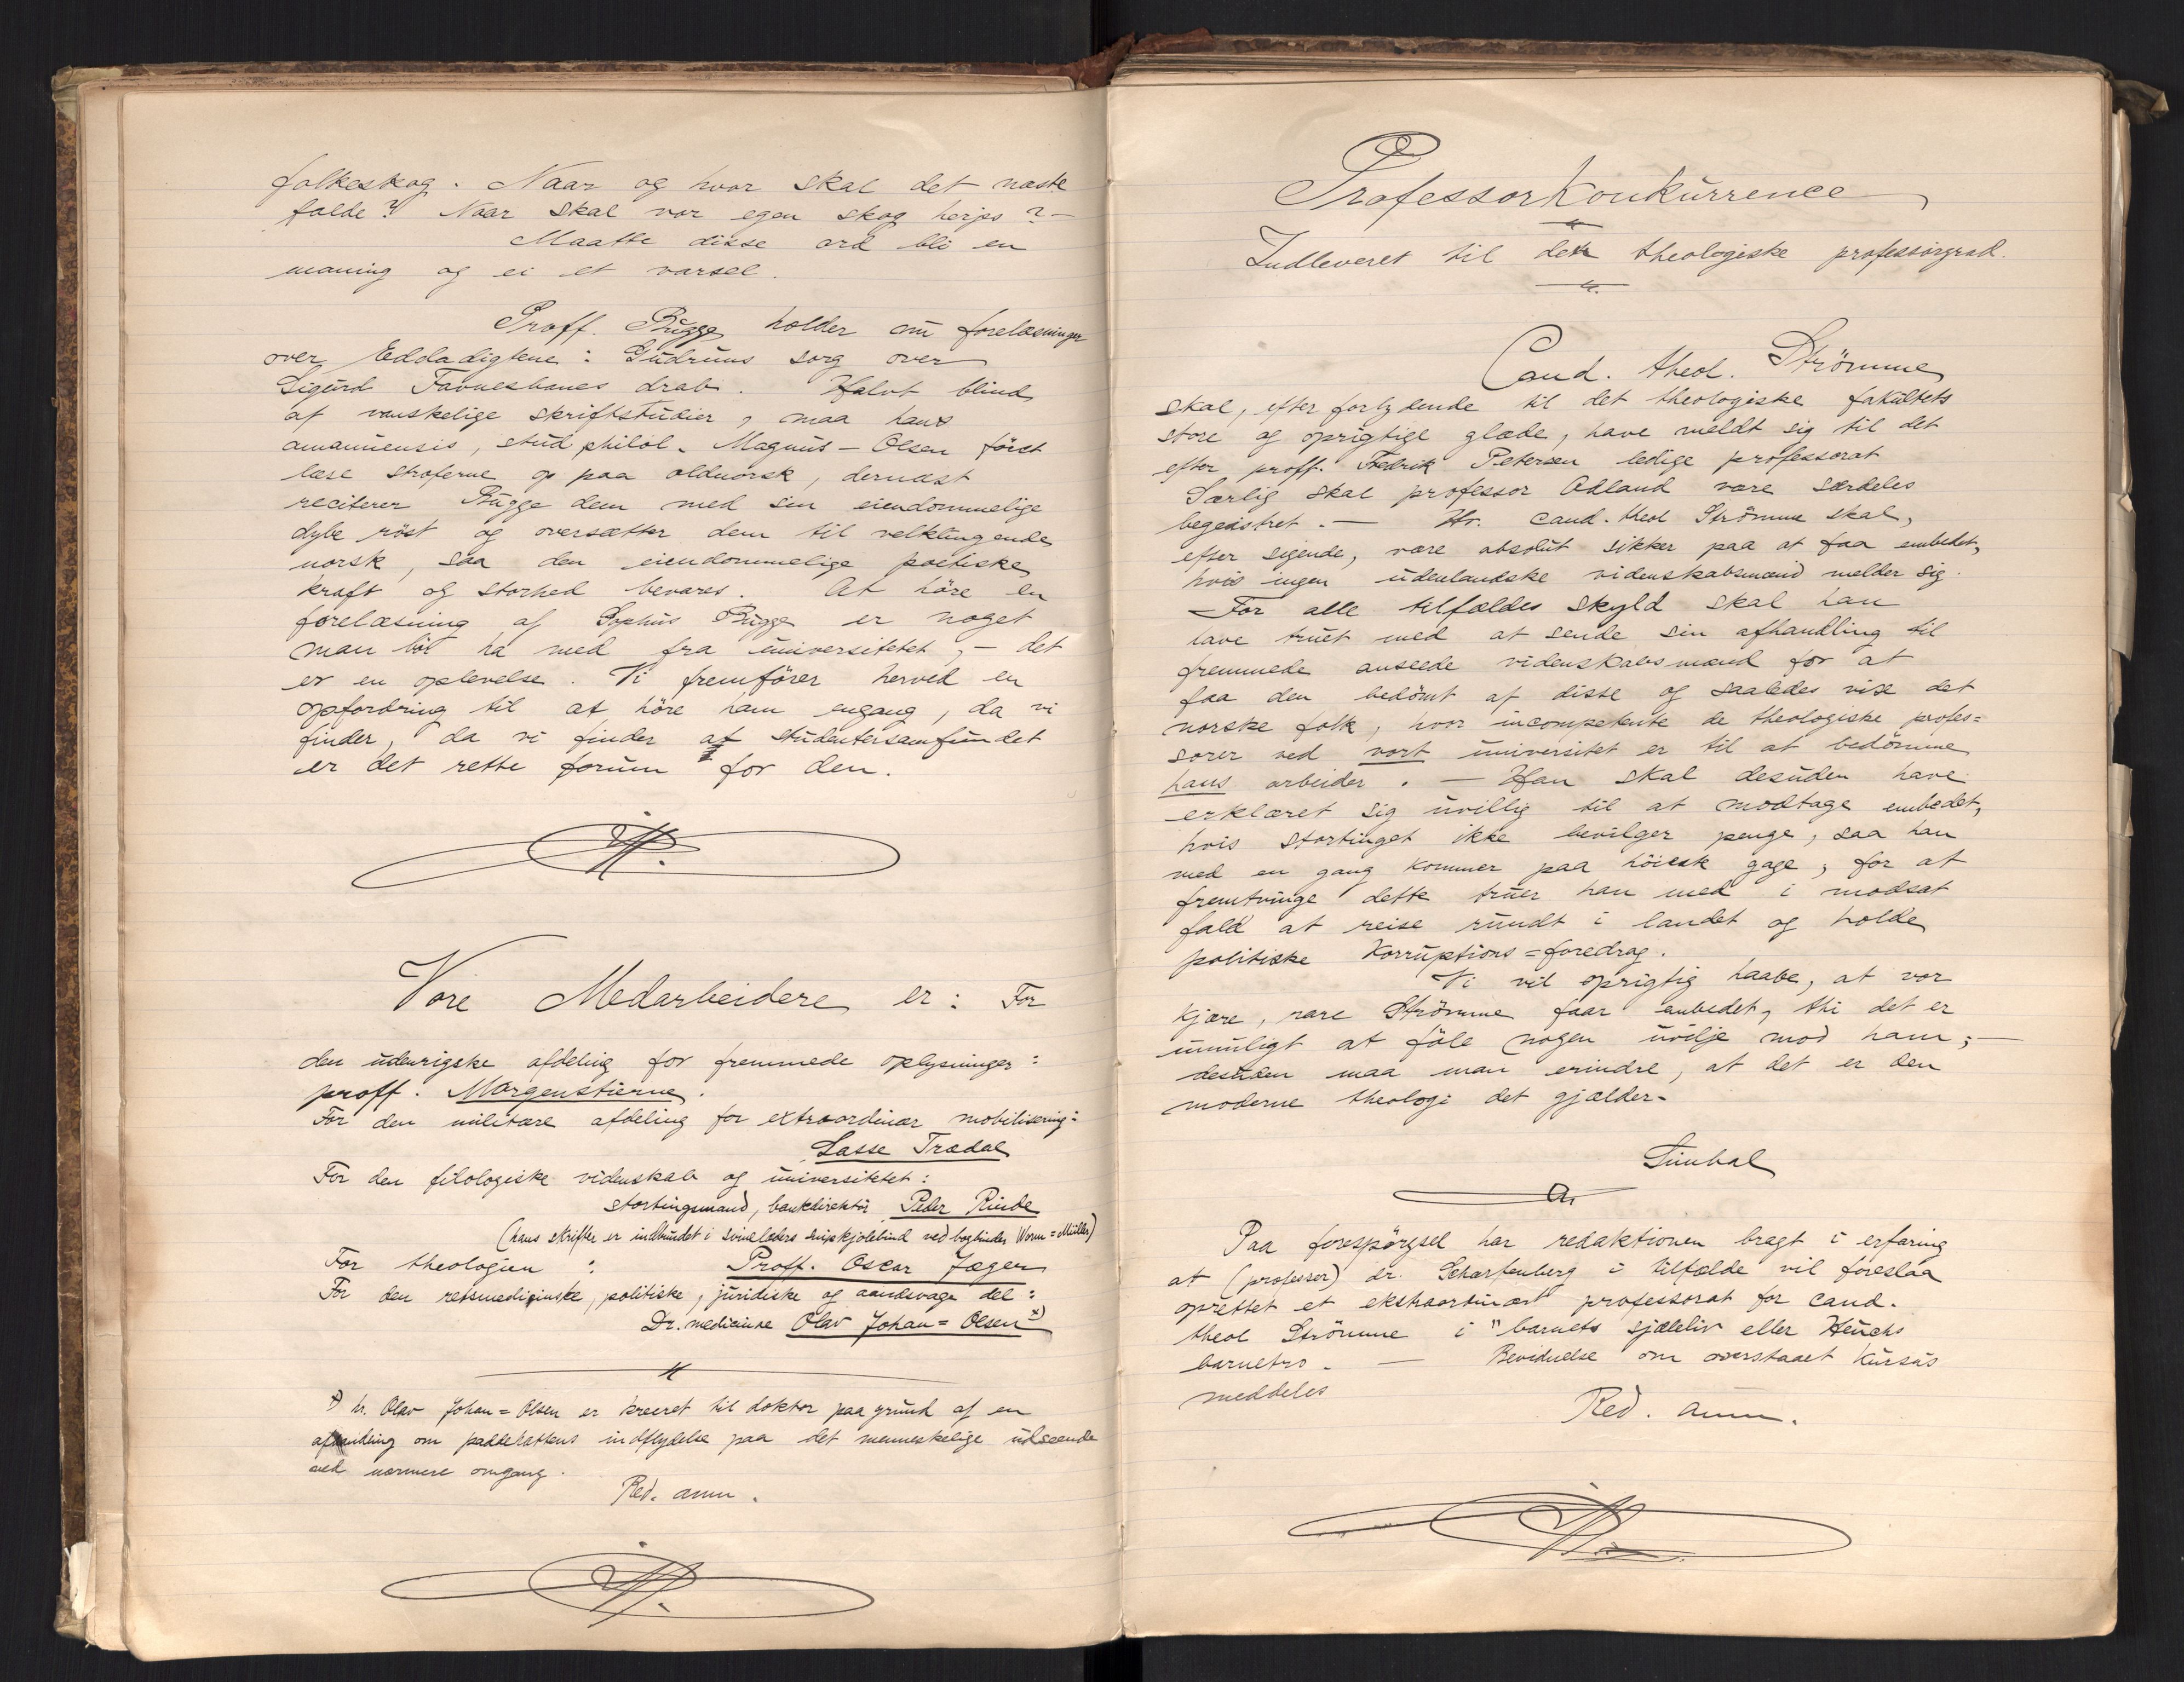 folkeskog. Naar og hvor skal det næste
falde? Naar skal vor egen skog herjes? —
Maatte disse ord bli en
maning og ei et varsel.
Proff. Bugge holder nu forelæsninger
over Eddadigtene: Gudruns sorg over
Sigurd Favnesbanes drab. Halvt blind
af vanskelige skriftstudier, maa hans
amanuensis, stud philol. Magnus-Olsen først
læse stroferne op paa oldnorsk, dernæst
reciterer Bugge dem med sin eiendommelige
dybe röst og oversætter dem til velklingende
norsk, saa den eiendommelige poetiske
kraft og storhed bevares. At höre en
forelæsning af Sophus Bugge er noget
man bör ha med fra universitetet, — det
er en oplevelse. Vi fremförer herved en
opfordring til at höre ham engang, da vi
finder, da vi finder at studentersamfundet
er det rette forum for den.
Vore Medarbeidere er: For
den udenrigske afdeling for fremmede oplysninger:
proff. Morgenstierne.
For den militære afdeling for extraordinær mobilisering:
Lasse Trædal
For den filologiske videnskab og universitetet:
stortingsmand, bankdirektör Peder Rinde
(hans skrifter er indbundet i svinelæders snipkjolebind ved bogbinder Worm=Müller)
For theologien : Proff. Oscar Jæger
For den retsmedicinske, politiske, juridiske og aandsvage del:
Dr. medicinæ Olav Johan=Olsen *)
*) hr. Olav Johan=Olsen er kreeret til doktor paa grund af en
afhandling om paddehattens indflydelse paa det menneskelige udseende
ved nærmere omgang.
Red. anm.
Professorkonkurrence
Indleveret til den theologiske professorgrad.
Cand. theol. Strömme
skal, efter forlydende til det theologiske fakultets
store og oprigtige glæde, have meldt sig til det
efter proff. Fredrik Petersen ledige professorat
Særlig skal professor Odland være særdeles
begeistret. — Hr. cand. theol Strömme skal,
efter sigende, være absolut sikker paa at faa embedet,
hvis ingen udenlandske videnskabsmænd melder sig.
For alle tilfældes skyld skal han
have truet med at sende sin afhandling til
fremmede anseede videnskabsmænd for at
faa den bedömt af disse og saaledes vise det
norske folk, hvor incompetente de theologiske profes=
sorer ved vort universitet er til at bedömme
hans arbeider. — Han skal desuden have
erklæret sig uvillig til at modtage embedet,
hvis stortinget ikke bevilger penge, saa han
med en gang kommer paa höieste gage; for at
fremtvinge dette truer han med i modsat
fald at reise rundt i landet og holde
politiske Korruptions=foredrag.
Vi vil oprigtig haabe, at vor
kjære, rare Strömme faar embedet, thi det er
umuligt at föle nogen uvilje mod ham; —
desuden maa man erindre, at det er den
moderne theologi det gjælder.
Simbal
Paa forespörgsel har redaktionen bragt i erfaring
at (professor) dr. Scharfenberg i tilfælde vil foreslaa
oprettet et ekstraordinært professorat for cand.
theol Strömme i "barnets sjæleliv eller Heuchs
barnetro. — Bevidnelse om overstaaet kursus
meddeles
Red. anm.